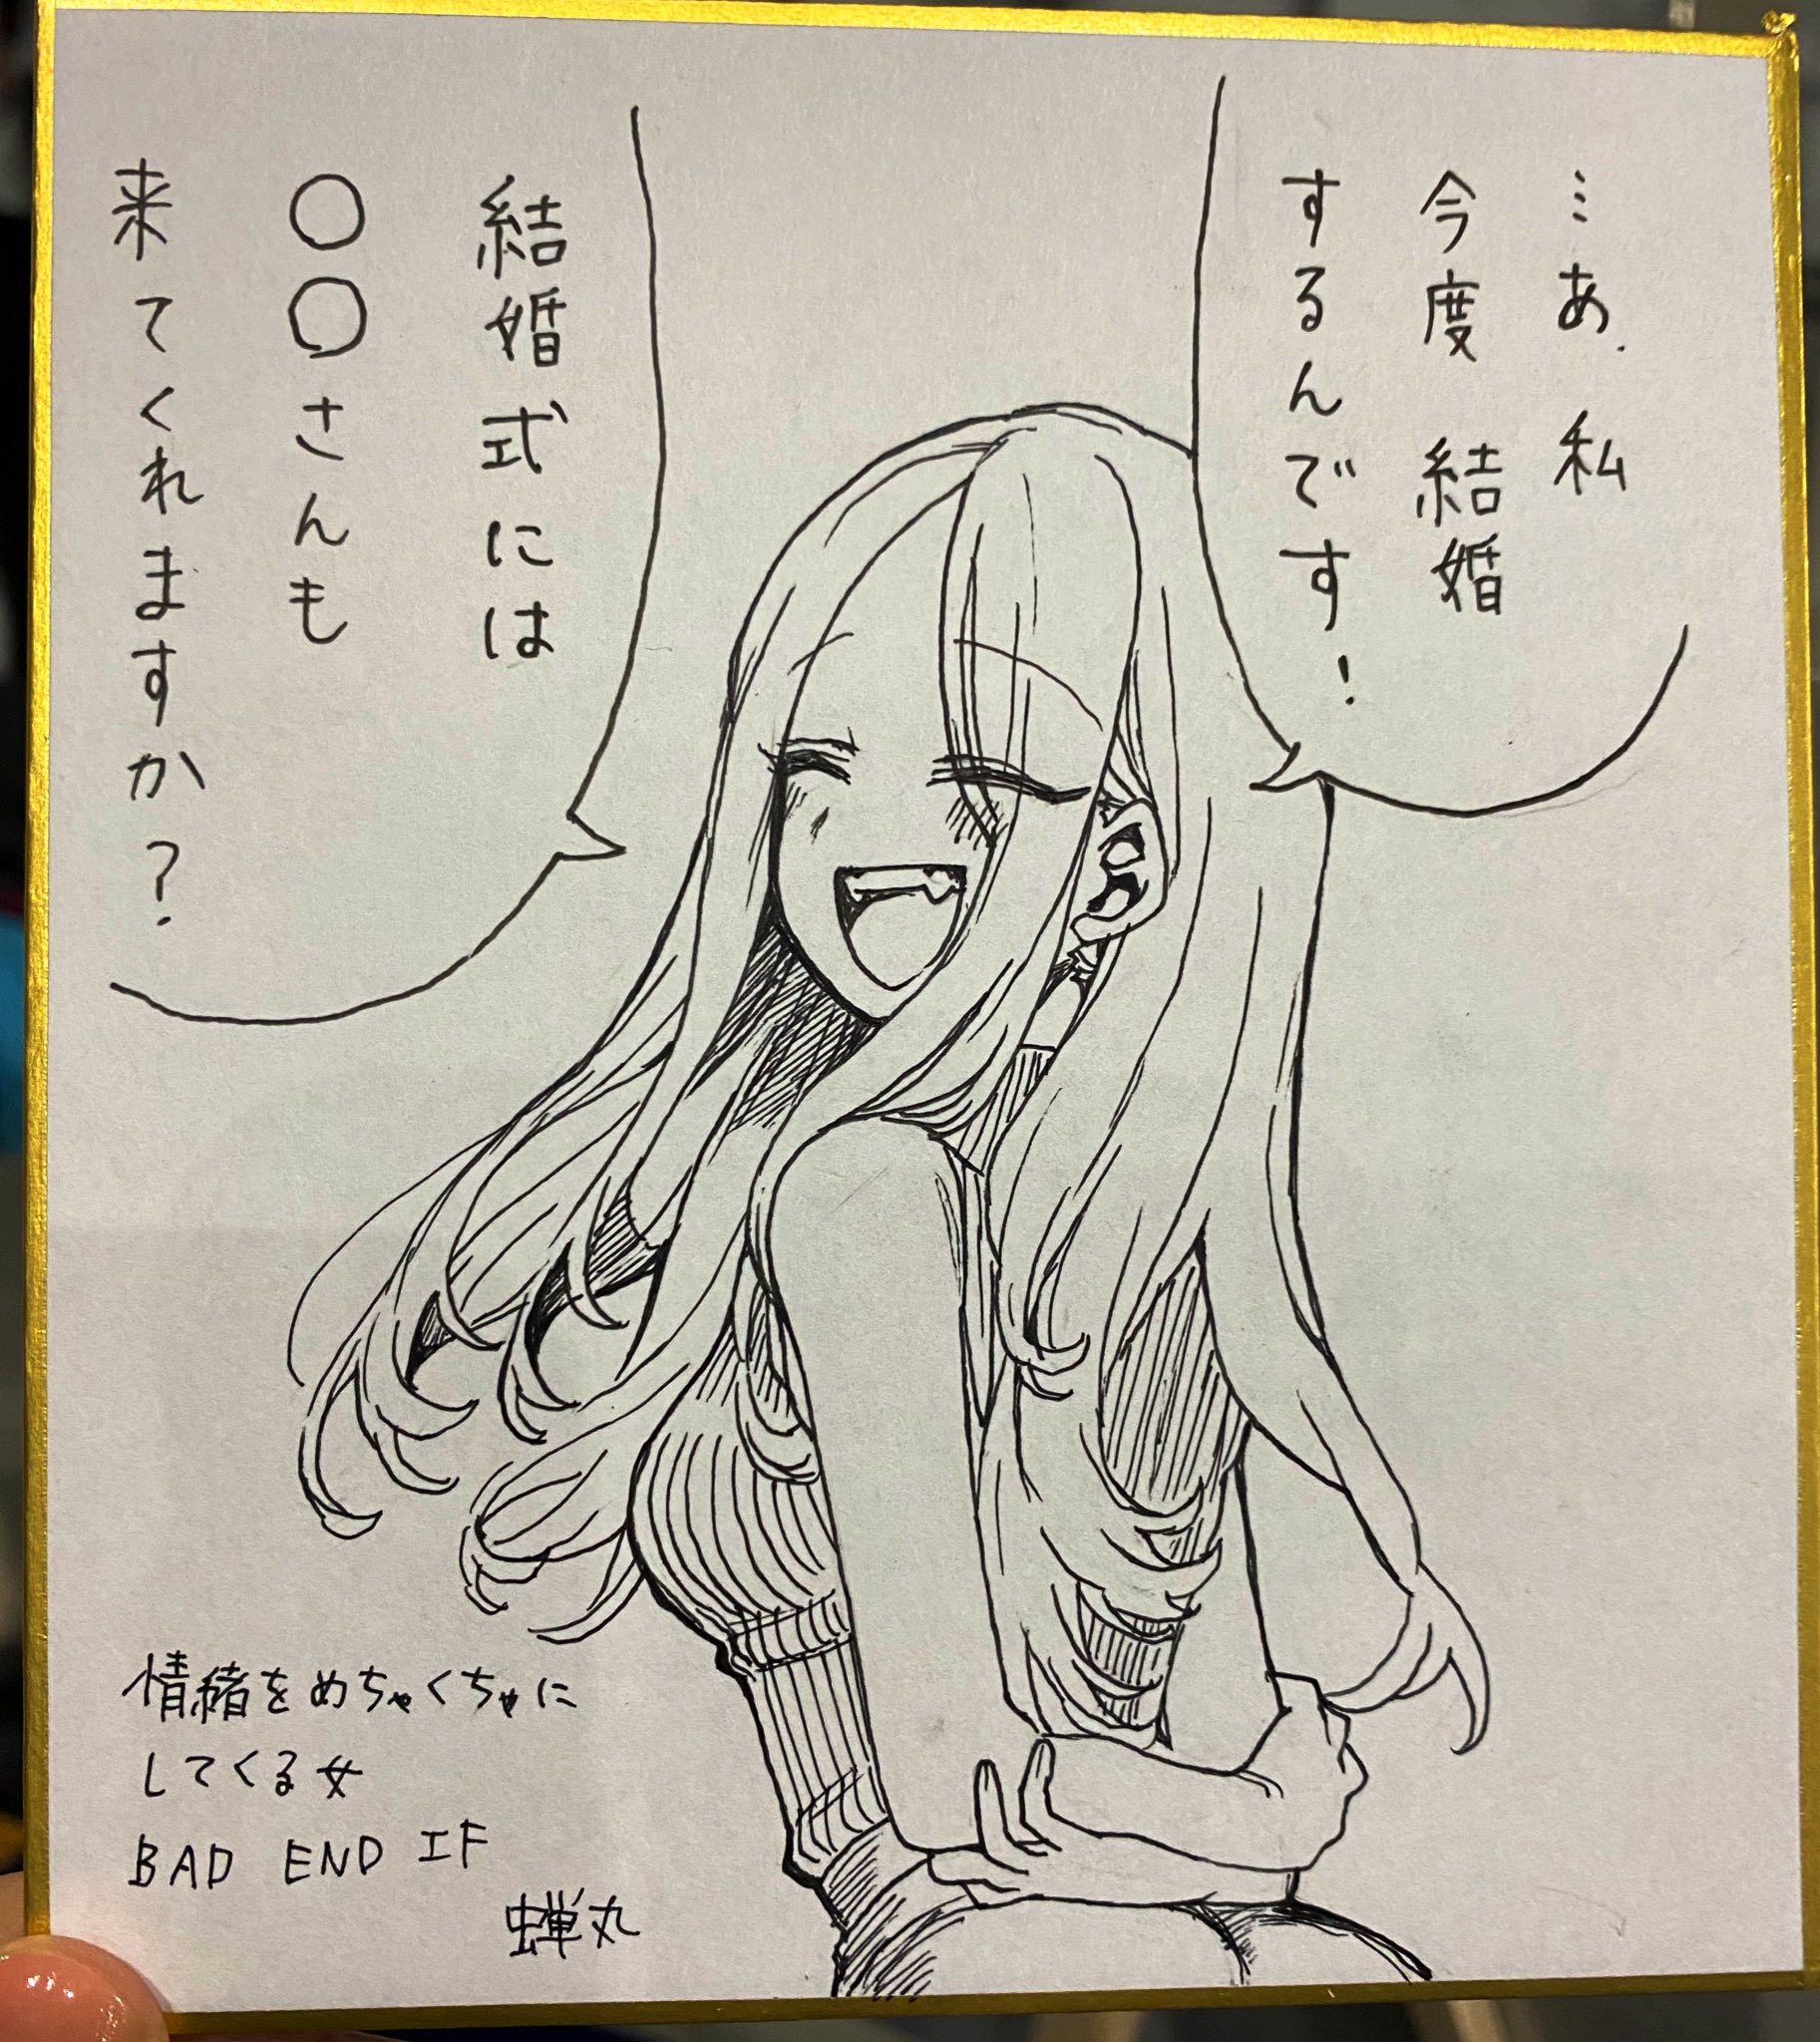 …あ、私
今度 結婚
するんです!
結婚式には
〇〇さんも
来てくれますか?
情緒をめちゃくちゃに
してくる女
BAD END IF
蝉丸